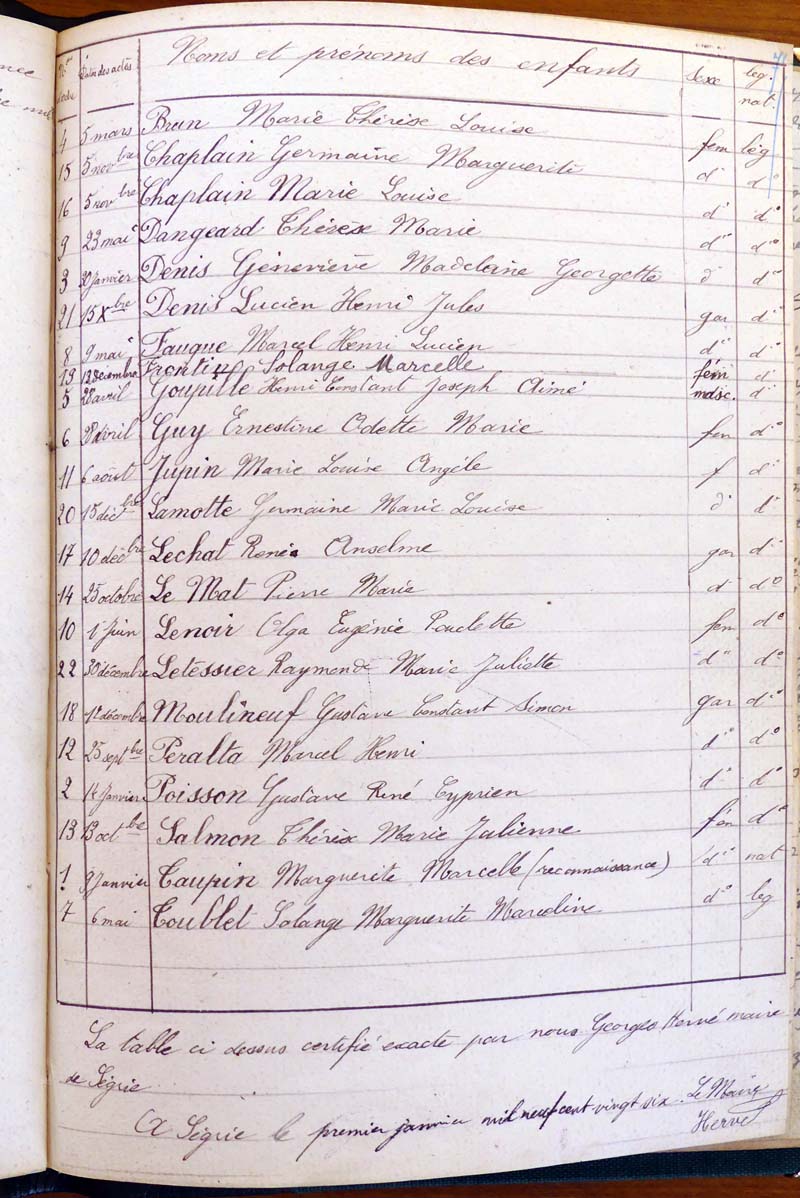 Nos d'ordre Dates des actes Noms et prénoms des enfants sexe leg. nat.
4 5 mars Brun Marie Thérèse Louise fem lèg
15 5 novbre Chaplain Germaine Marguerite d° d°
16 5 novbre Chaplain Marie Louise d° d°
9 23 mai Dangeard Thérèse Marie d° d°
3 20 janvier Denis Géneviève Madeleine Georgette d° d°
21 15 Xbre Denis Lucien Henri Jules gar d°
8 9 mai Fauque Marcel Henri Lucien d° d°
19 12 décembre Solange Marcelle fém d°
5 28 avril Goupille Henri Constant Joseph Aimé masc. d°
6 28 avril Guy Ernestine Odette Marie fem d°
11 6 août Jupin Marie Louise Angèle f d°
20 15 décbre Lamotte Germaine Marie Louise d° d°
17 10 décbre Lechat René Anselme gar d°
14 25 octobre Le Mat Pierre Marie d° d°
10 1 juin Lenoir Olga Eugénie Paulette fem d°
22 30 décembre Letessier Raymonde Marie Juliette d° d°
18 12 décembre Moulineuf Gustave Constant Simon gar d°
12 25 septbre Peralta Marcel Henri d° d°
2 14 janvier Poisson Gustave René Cyprien d° d°
13 13 octbre Salmon Thérèse Marie Julienne fém d°
1 9 janvier Taupin Marguerite Marcelle (reconnaissance) d° nat
7 6 mai Toublet Solange Marguerite Marceline d° leg
La table ci dessus certifié exacte par nous Georges Hervé maire
de Ségrie
A Ségrie le premier janvier mil neuf cent vingt six. Le Maire
Hervé